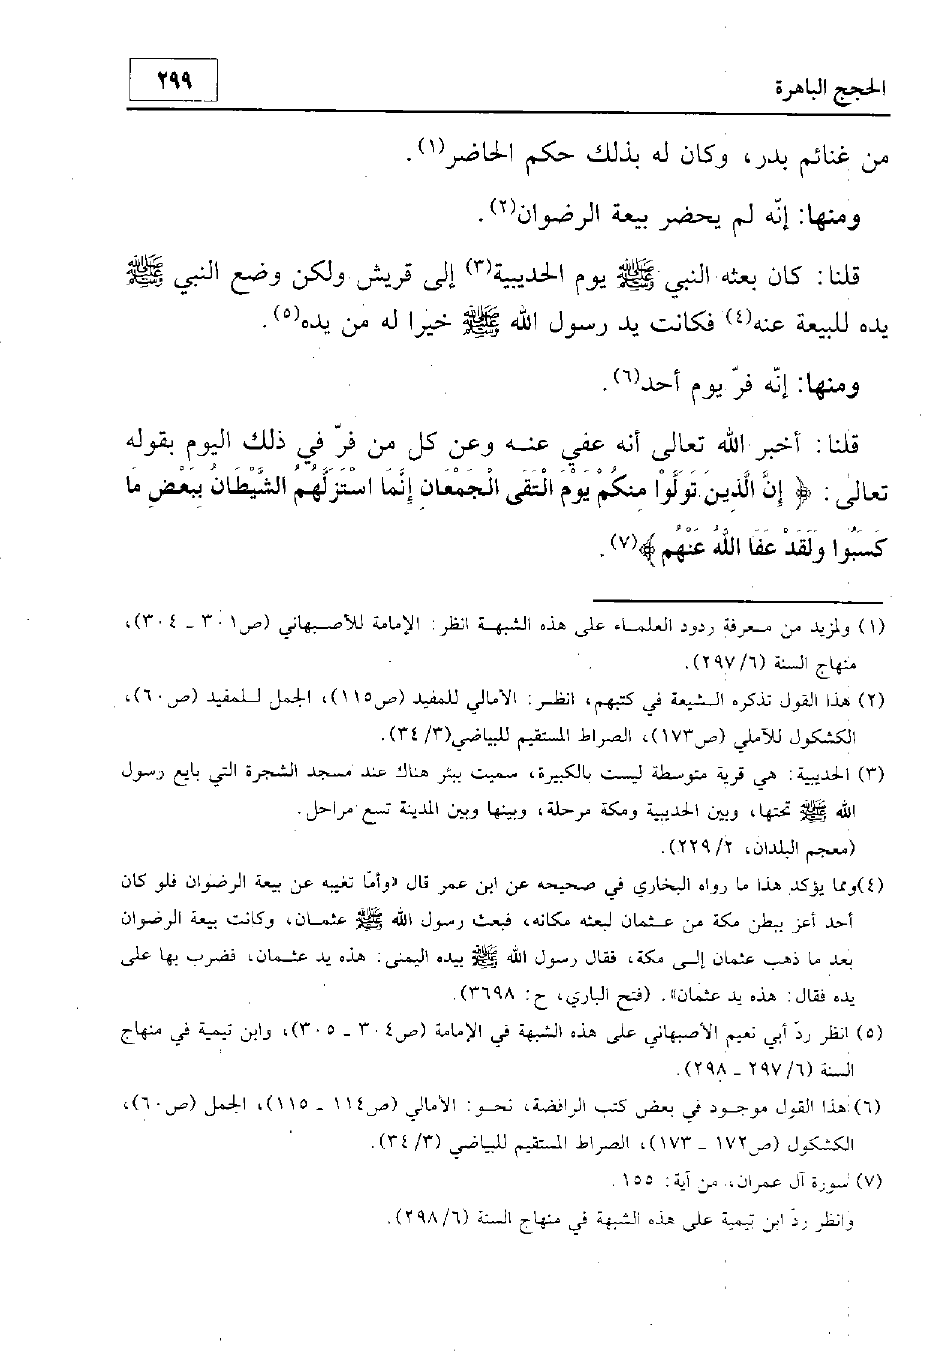 الحجج الباهرة
٢٩٩
من غنائم بدر، وكان له بذلك حكم الحاضر(١).
ومنها: إنّه لم يحضر بيعة الرضوان(٢).
قلنا: كان بعثه النبي ﷺ يوم الحديبية(٣) إلى قريش ولكن وضع النبي ﷺ
يده للبيعة عنه(٤) فكانت يد رسول الله ﷺ خيرا له من يده(٥).
ومنها: إنّه فرّ يوم أحد(٦).
قلنا: أخبر الله تعالى أنه عفي عنه وعن كل من فرّ في ذلك اليوم بقوله
تعالى: ﴿ إِنَّ الَّذِينَ تَوَلَّوْا مِنكُمْ يَوْمَ الْتَقَى الْجَمْعَانِ إِنَّمَا اسْتَزَلَّهُمُ الشَّيْطَانُ بِبَعْضِ مَا
كَسَبُوا وَلَقَدْ عَفَا اللَّهُ عَنْهُمْ ﴾(٧).
(١) ولمزيد من معرفة ردود العلماء على هذه الشبهة انظر: الإمامة للأصبهاني (ص٣٠١ ـ ٣٠٤)،
منهاج السنة (٦/ ٢٩٧).
(٢) هذا القول تذكره الشيعة في كتبهم، انظر: الأمالي للمفيد (ص١١٥)، الجمل للمفيد (ص٦٠)،
الكشكول للآملي (ص١٧٣)، الصراط المستقيم للبياضي(٣/ ٣٤).
(٣) الحديبية: هي قرية متوسطة ليست بالكبيرة، سميت ببئر هناك عند مسجد الشجرة التي بايع رسول
الله ﷺ تحتها، وبين الحديبية ومكة مرحلة، وبينها وبين المدينة تسع مراحل.
(معجم البلدان، ٢/ ٢٢٩).
(٤)ومما يؤكد هذا ما رواه البخاري في صحيحه عن ابن عمر قال «وأمّا تغيبه عن بيعة الرضوان فلو كان
أحد أعز ببطن مكة من عثمان لبعثه مكانه، فبعث رسول الله ﷺ عثمان، وكانت بيعة الرضوان
بعد ما ذهب عثمان إلى مكة، فقال رسول الله ﷺ بيده اليمنى: هذه يد عثمان، فضرب بها على
يده فقال: هذه يد عثمان». (فتح الباري، ح: ٣٦٩٨).
(٥) انظر ردّ أبي نعيم الأصبهاني على هذه الشبهة في الإمامة (ص٣٠٤ ـ ٣٠٥)، وابن تيمية في منهاج
السنة (٦/ ٢٩٧ ـ ٢٩٨).
(٦) هذا القول موجود في بعض كتب الرافضة، نحو: الأمالي (ص١١٤ ـ ١١٥)، الجمل (ص٦٠)،
الكشكول (ص١٧٢ ـ ١٧٣)، الصراط المستقيم للبياضي (٣/ ٣٤).
(٧) سورة آل عمران، من آية: ١٥٥.
وانظر ردّ ابن تيمية على هذه الشبهة في منهاج السنة (٦/ ٢٩٨).